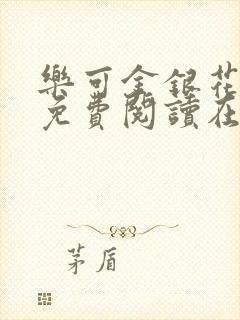 樂可金銀花
免費閱讀在
茅盾